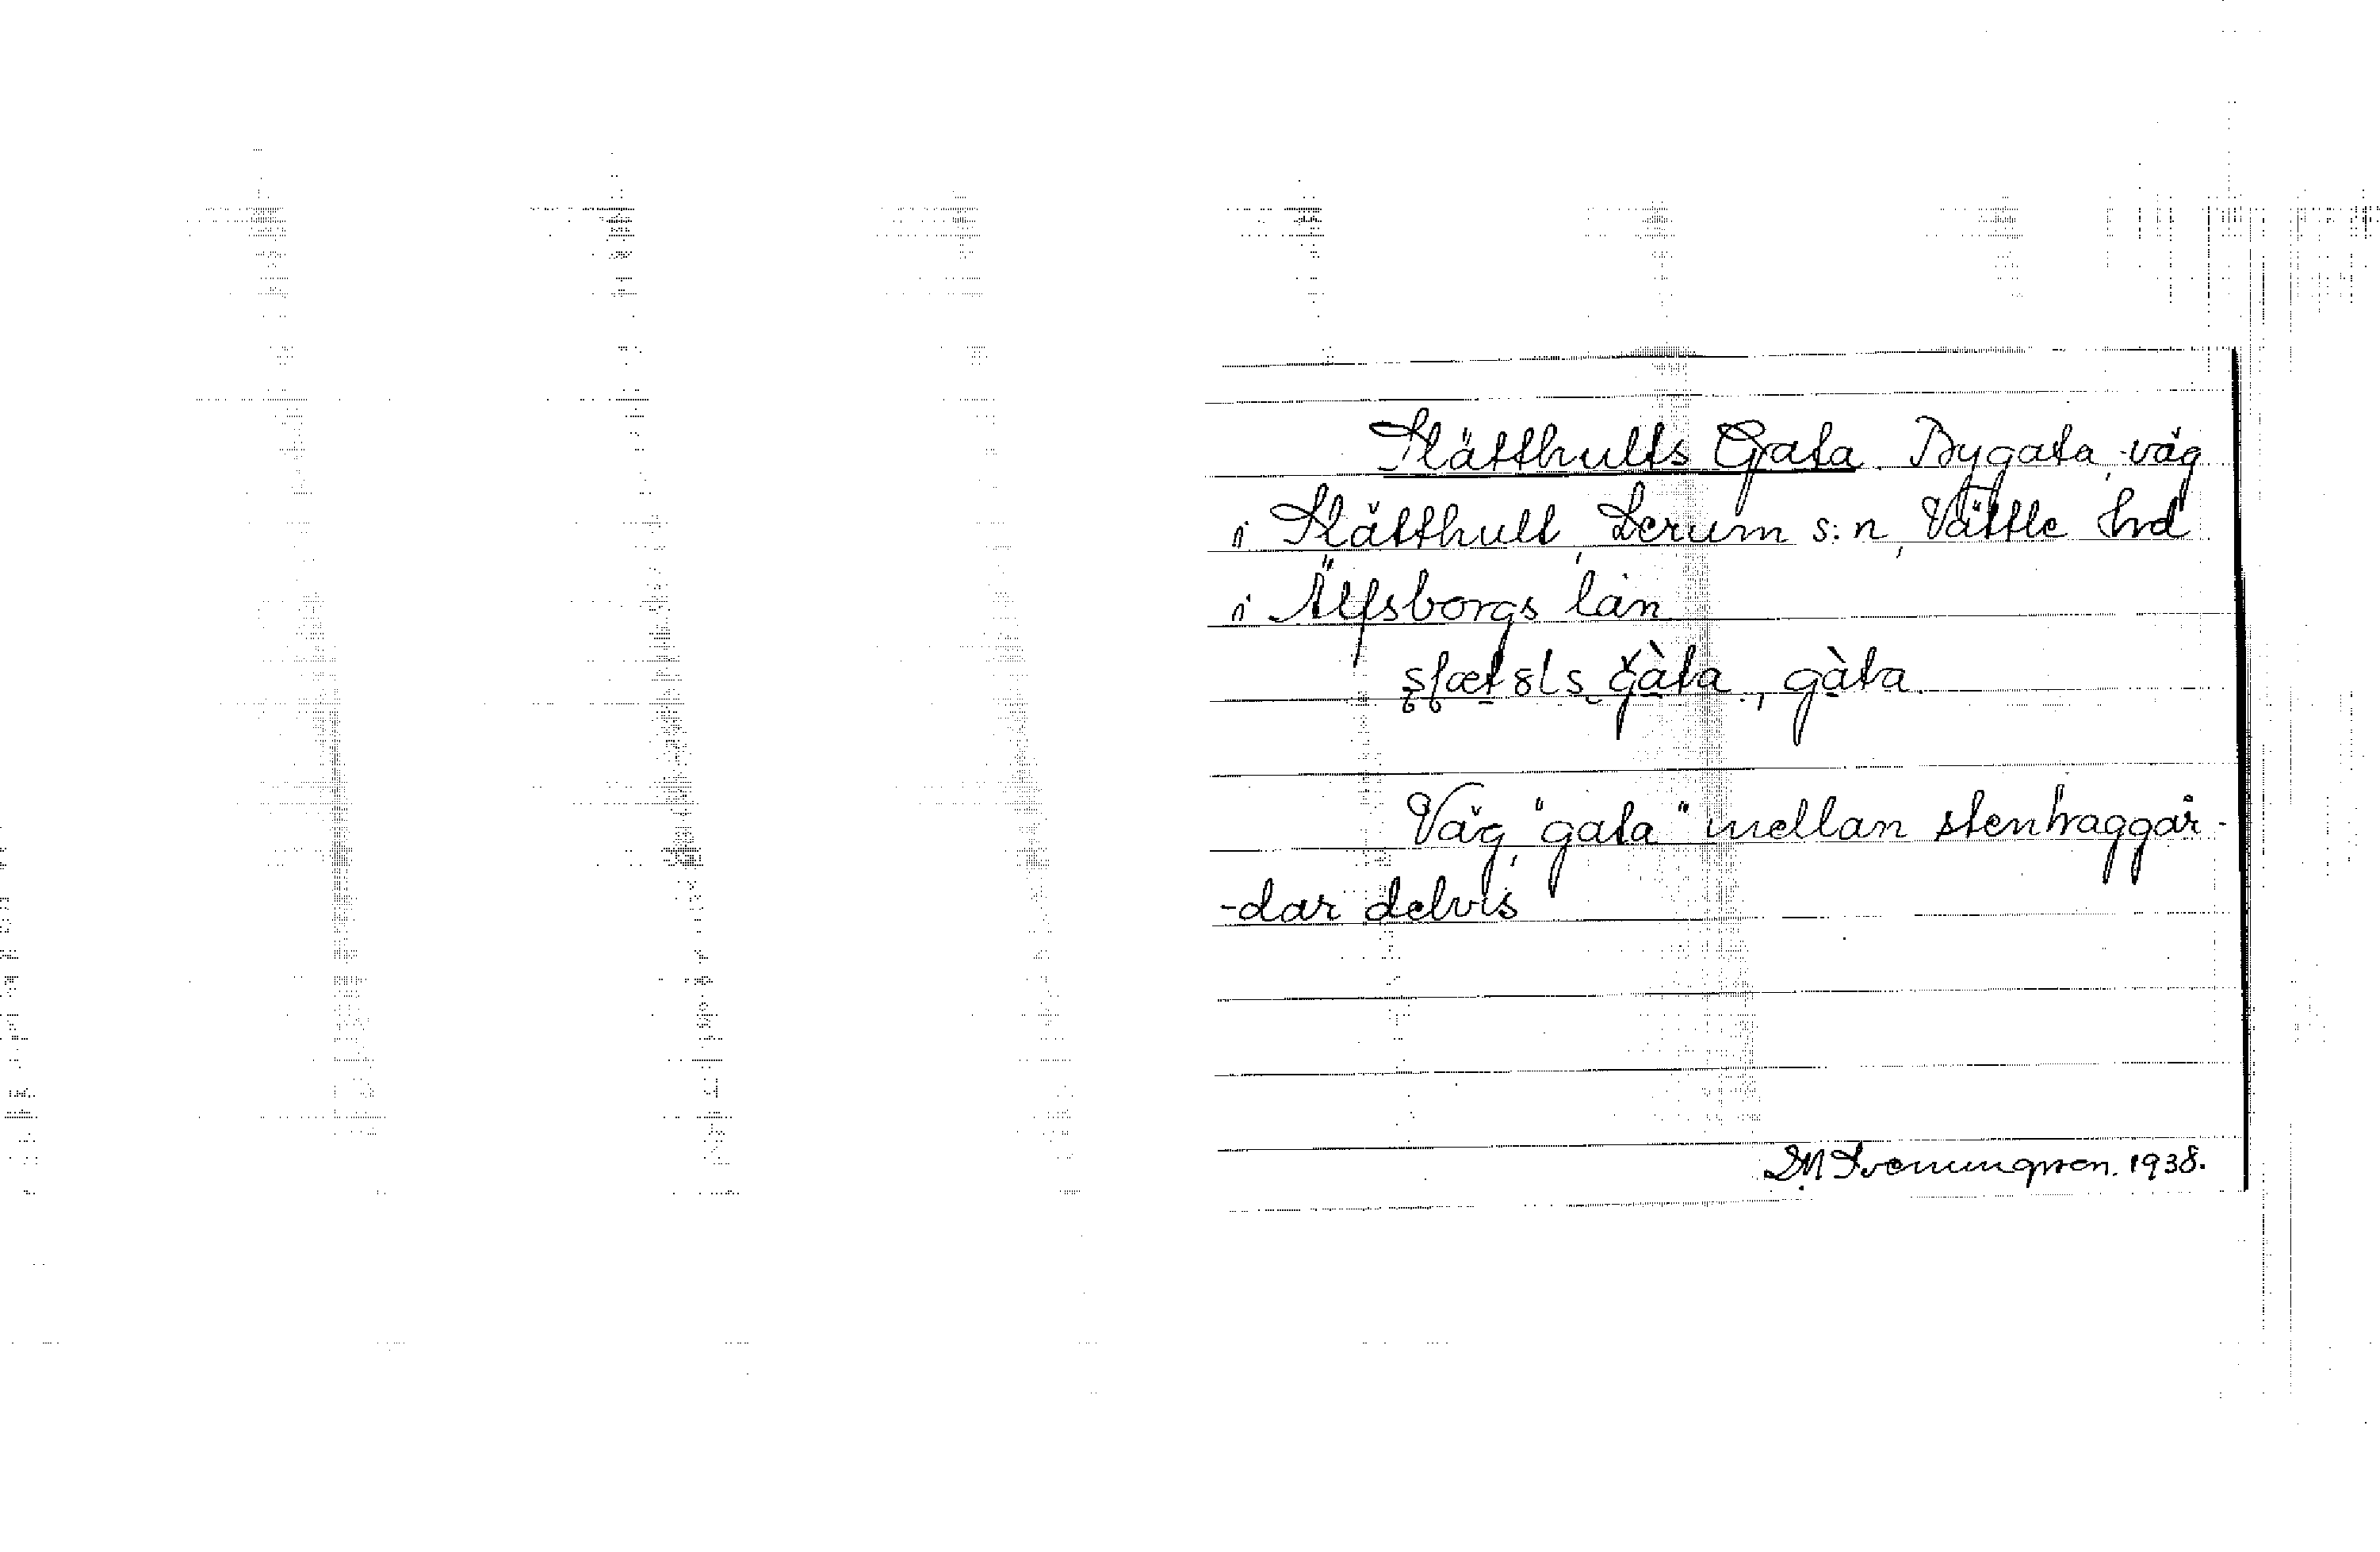 Slätthults Gata. Bygata, väg
i Slätthult, Lerum s:n, Vättle hrd
i Älfsborgs län
gàta.
Väg, "gata" mellan stenhaggår-
-dar delvis
S.M Svenungsson. 1938.